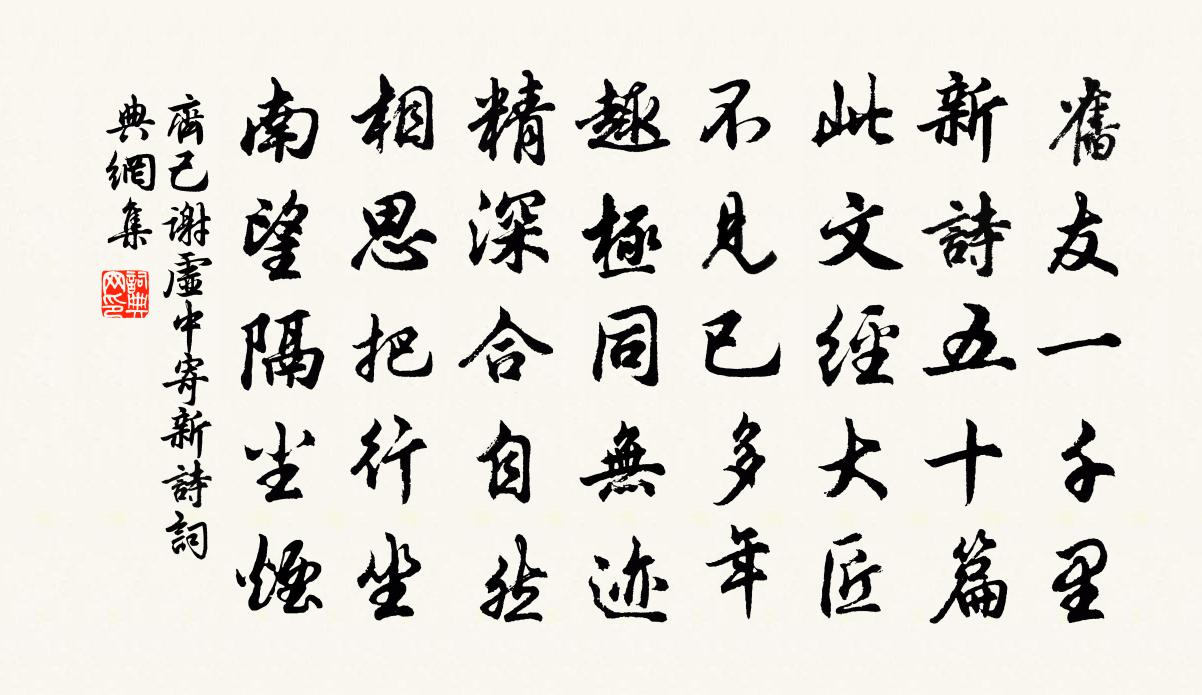 舊友一千里
新詩五十篇
此文經大匠
不見已多年
趣極同無迹
精深合自然
相思把行坐
南望隔尘煙
齊己谢虛中寄新詩詞
典網集
詞典网印